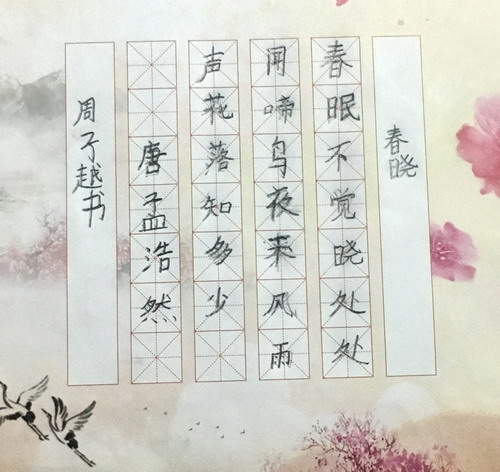 春晓
春眠不觉晓处处
闻啼鸟夜来风雨
声花落知多少
唐孟浩然
周子越书